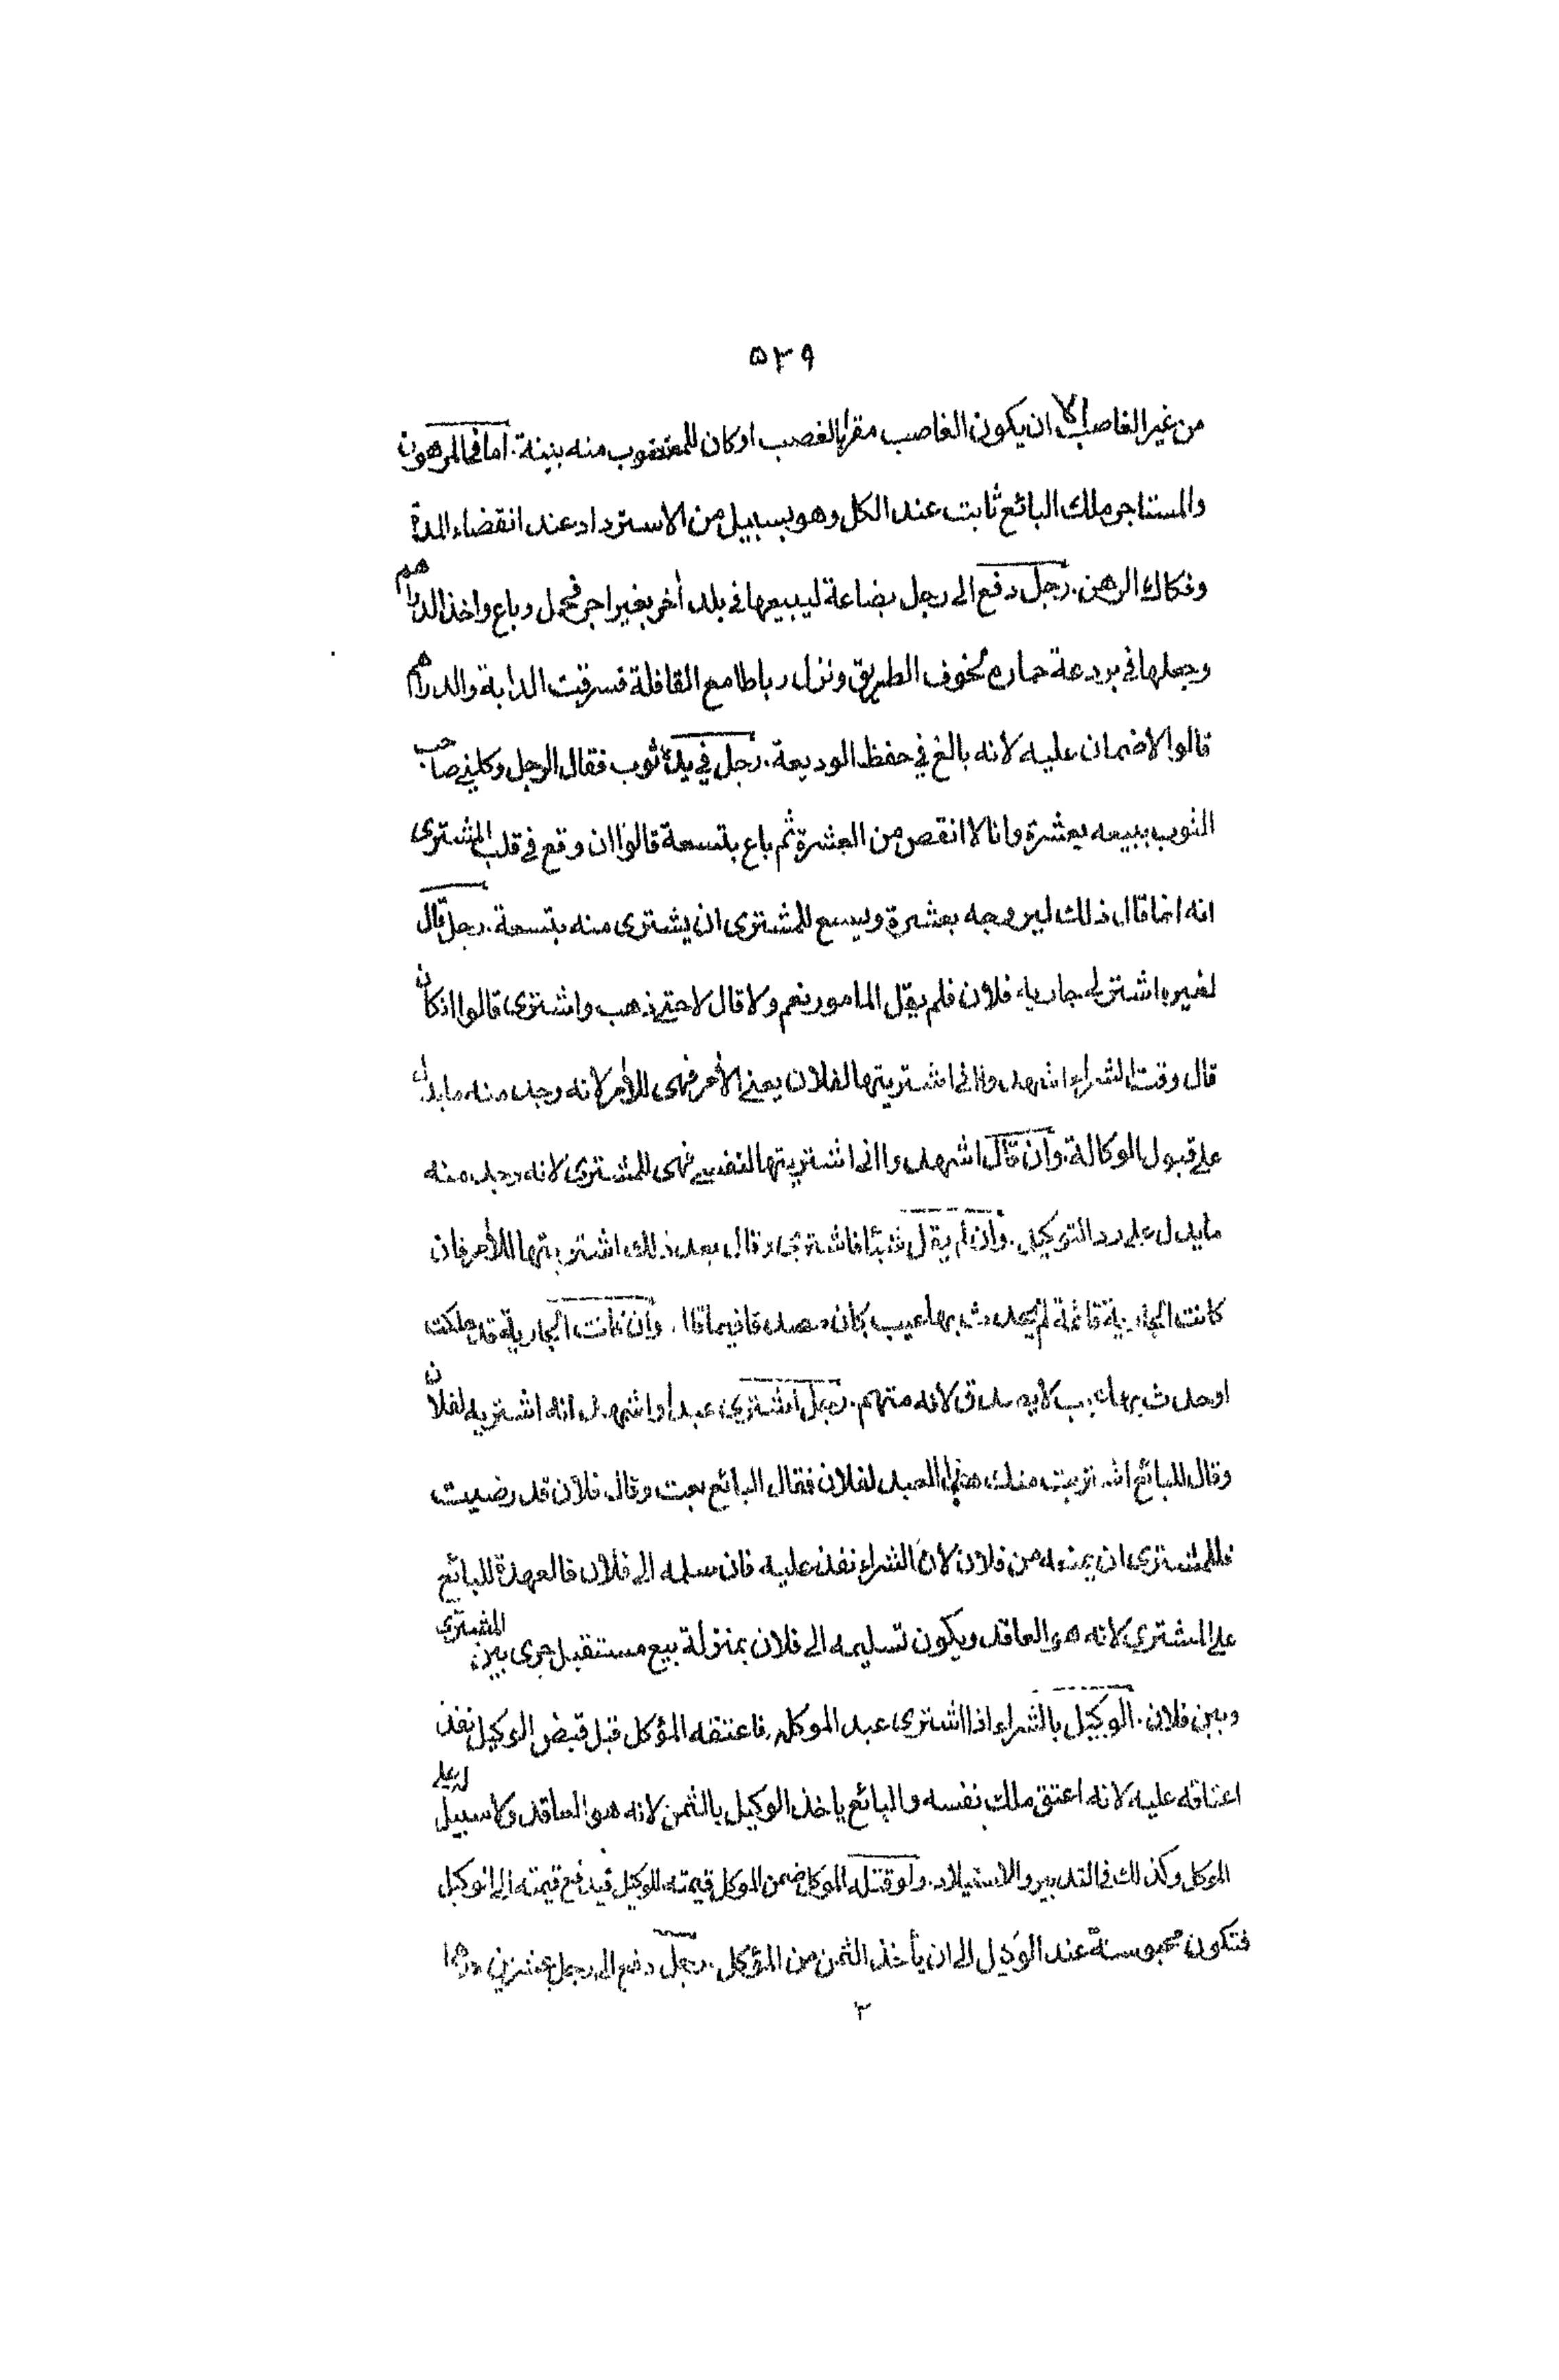 ٥٣٩
من غير الغاصب الا ان يكون الغاصب مقرا بالغصب او كان للمغصوب منه بينة. اما في المرهون
والمستاجر ملك البائع ثابت عند الكل وهو بسبيل من الاسترداد عند انقضاء المدة
وفكاك الرهن. رجل دفع الى رجل بضاعة ليبيعها في بلد أخر بغير اجر فحمل وباع واخذ الدراهم
وجعلها في بردعة حماره لخوف الطريق ونزل رباطا مع القافلة فسرقت الدابة والدراهم
قالوا لاضمان عليه لانه بالغ في حفظ الوديعة. رجل في يده ثوب فقال الرجل وكلني صاحب
الثوب ببيعه بعشرة وانا لا انقص من العشرة ثم باع بتسعة قالوا ان وقع في قلب المشترى
انه انما قال ذلك ليروجه بعشرة وليسع للمشترى ان يشترى منه بتسعة. رجل قال
لغيره اشتر لي جارية فلان فلم يقل المامور نعم ولا قال لا حتى ذهب واشترى قالوا ان كان
قال وقت الشراء اشهدوا انى اشتريتها لفلان يعنى الأمر فهى للأمر لانه وجد منه ما يدل
على قبول الوكالة. وان قال اشهدوا انى اشتريتها لنفسى فهى للمشترى لانه وجد منه
ما يدل على رد التوكيل. وان لم يقل شيئا فاشترى وقال بعد ذلك اشتريتها للأمر فان
كانت الجارية قائمة لم يحدث بها عيب كان مصدقا فيما قال. وان كانت الجارية قد هلكت
او حدث بها عيب لا يصدق لانه متهم. رجل اشترى عبدا واشهد انه اشتريه لفلان
وقال للبائع اشتريت منك هذا العبد لفلان فقال البائع بعت وقال فلان قد رضيت
فللمشترى ان يمنعه من فلان لان الشراء نفذ عليه فان سلمه الى فلان فالعهدة للبائع
على المشترى لانه هو العاقد ويكون تسليمه الى فلان بمنزلة بيع مستقبل جرى بين المشترى
وبين فلان. الوكيل بالشراء اذا اشترى عبد الموكله فاعتقه المؤكل قبل قبض الوكيل نفذ
اعتاقه عليه لانه اعتق ملك نفسه والبائع ياخذ الوكيل بالثمن لانه هو العاقد ولا سبيل له على
الموكل وكذلك في التدبير والاستيلاد. ولو قتله الموكل ضمن الموكل قيمته للوكيل فيدفع قيمته الى الوكيل
فتكون محبوسة عند الوكيل الى ان يأخذ الثمن من المؤكل. رجل دفع الى رجل عشرين درهما
٣